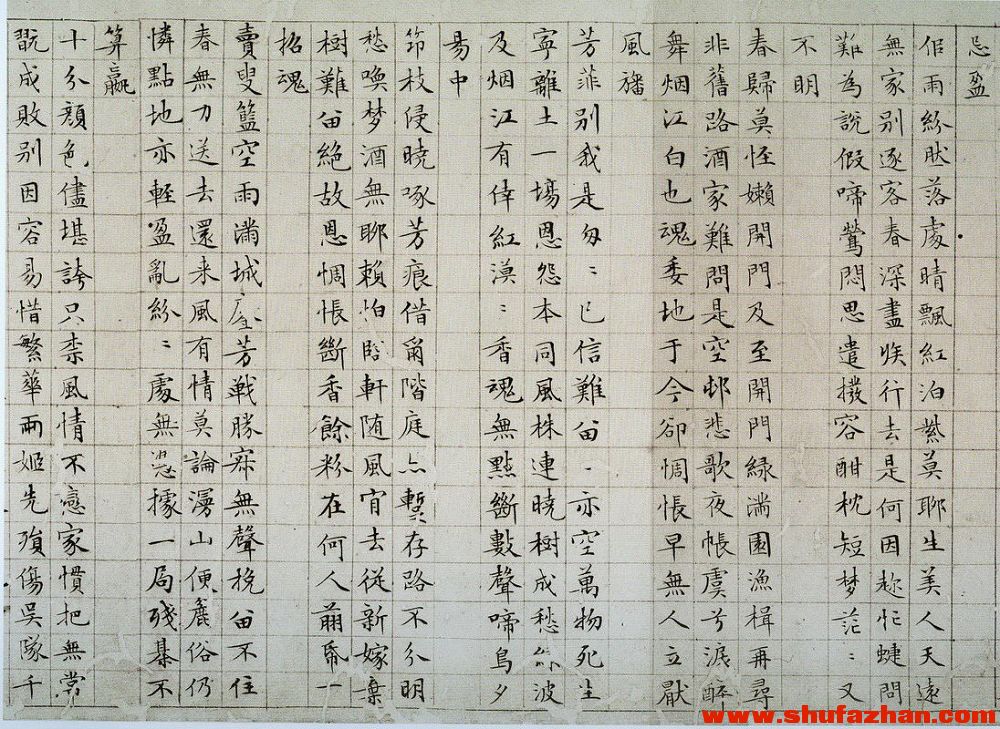 忌盈
佀雨紛肰落處晴飄紅泊紫莫聊生美人天遠
無家別逐客春深盡族行去是何因趂忙蜨問
難為說假啼鶯悶思遣撥容酣枕短梦茫〻又
不明
春歸莫恠嬾開門及至開門綠滿園漁楫再尋
非舊路酒家難問是空邨悲歌夜帳虞兮淚醉
舞烟江白也魂委地于今卻惆悵早無人立猒
風旛
芳菲別我是匆〻已信難畱〻亦空萬物死生
寧離土一場恩怨本同風株連曉樹成愁綠波
及烟江有倖紅漠〻香魂無點斷數聲啼鳥夕
昜中
笻枝侵曉啄芳痕借爾階庭亦蹔存路不分明
愁喚梦酒無聊賴怕臨軒随風肎去從新嫁棄
樹難畱絕故恩惆悵斷香餘粉在何人萠帋一
招魂
賣叟籃空雨滿城屋芳戦勝寂無聲稅畱不住
春無刀送去還来風有情莫論漫山便麄俗仍
憐點地亦輕盈亂紛〻處無憑據一局殘棊不
算贏
十分顏色儘堪誇只柰風情不戀家慣把無常
翫成敗別因容易惜繁華兩姬先殞傷吳隊千
www.shufazhan.com